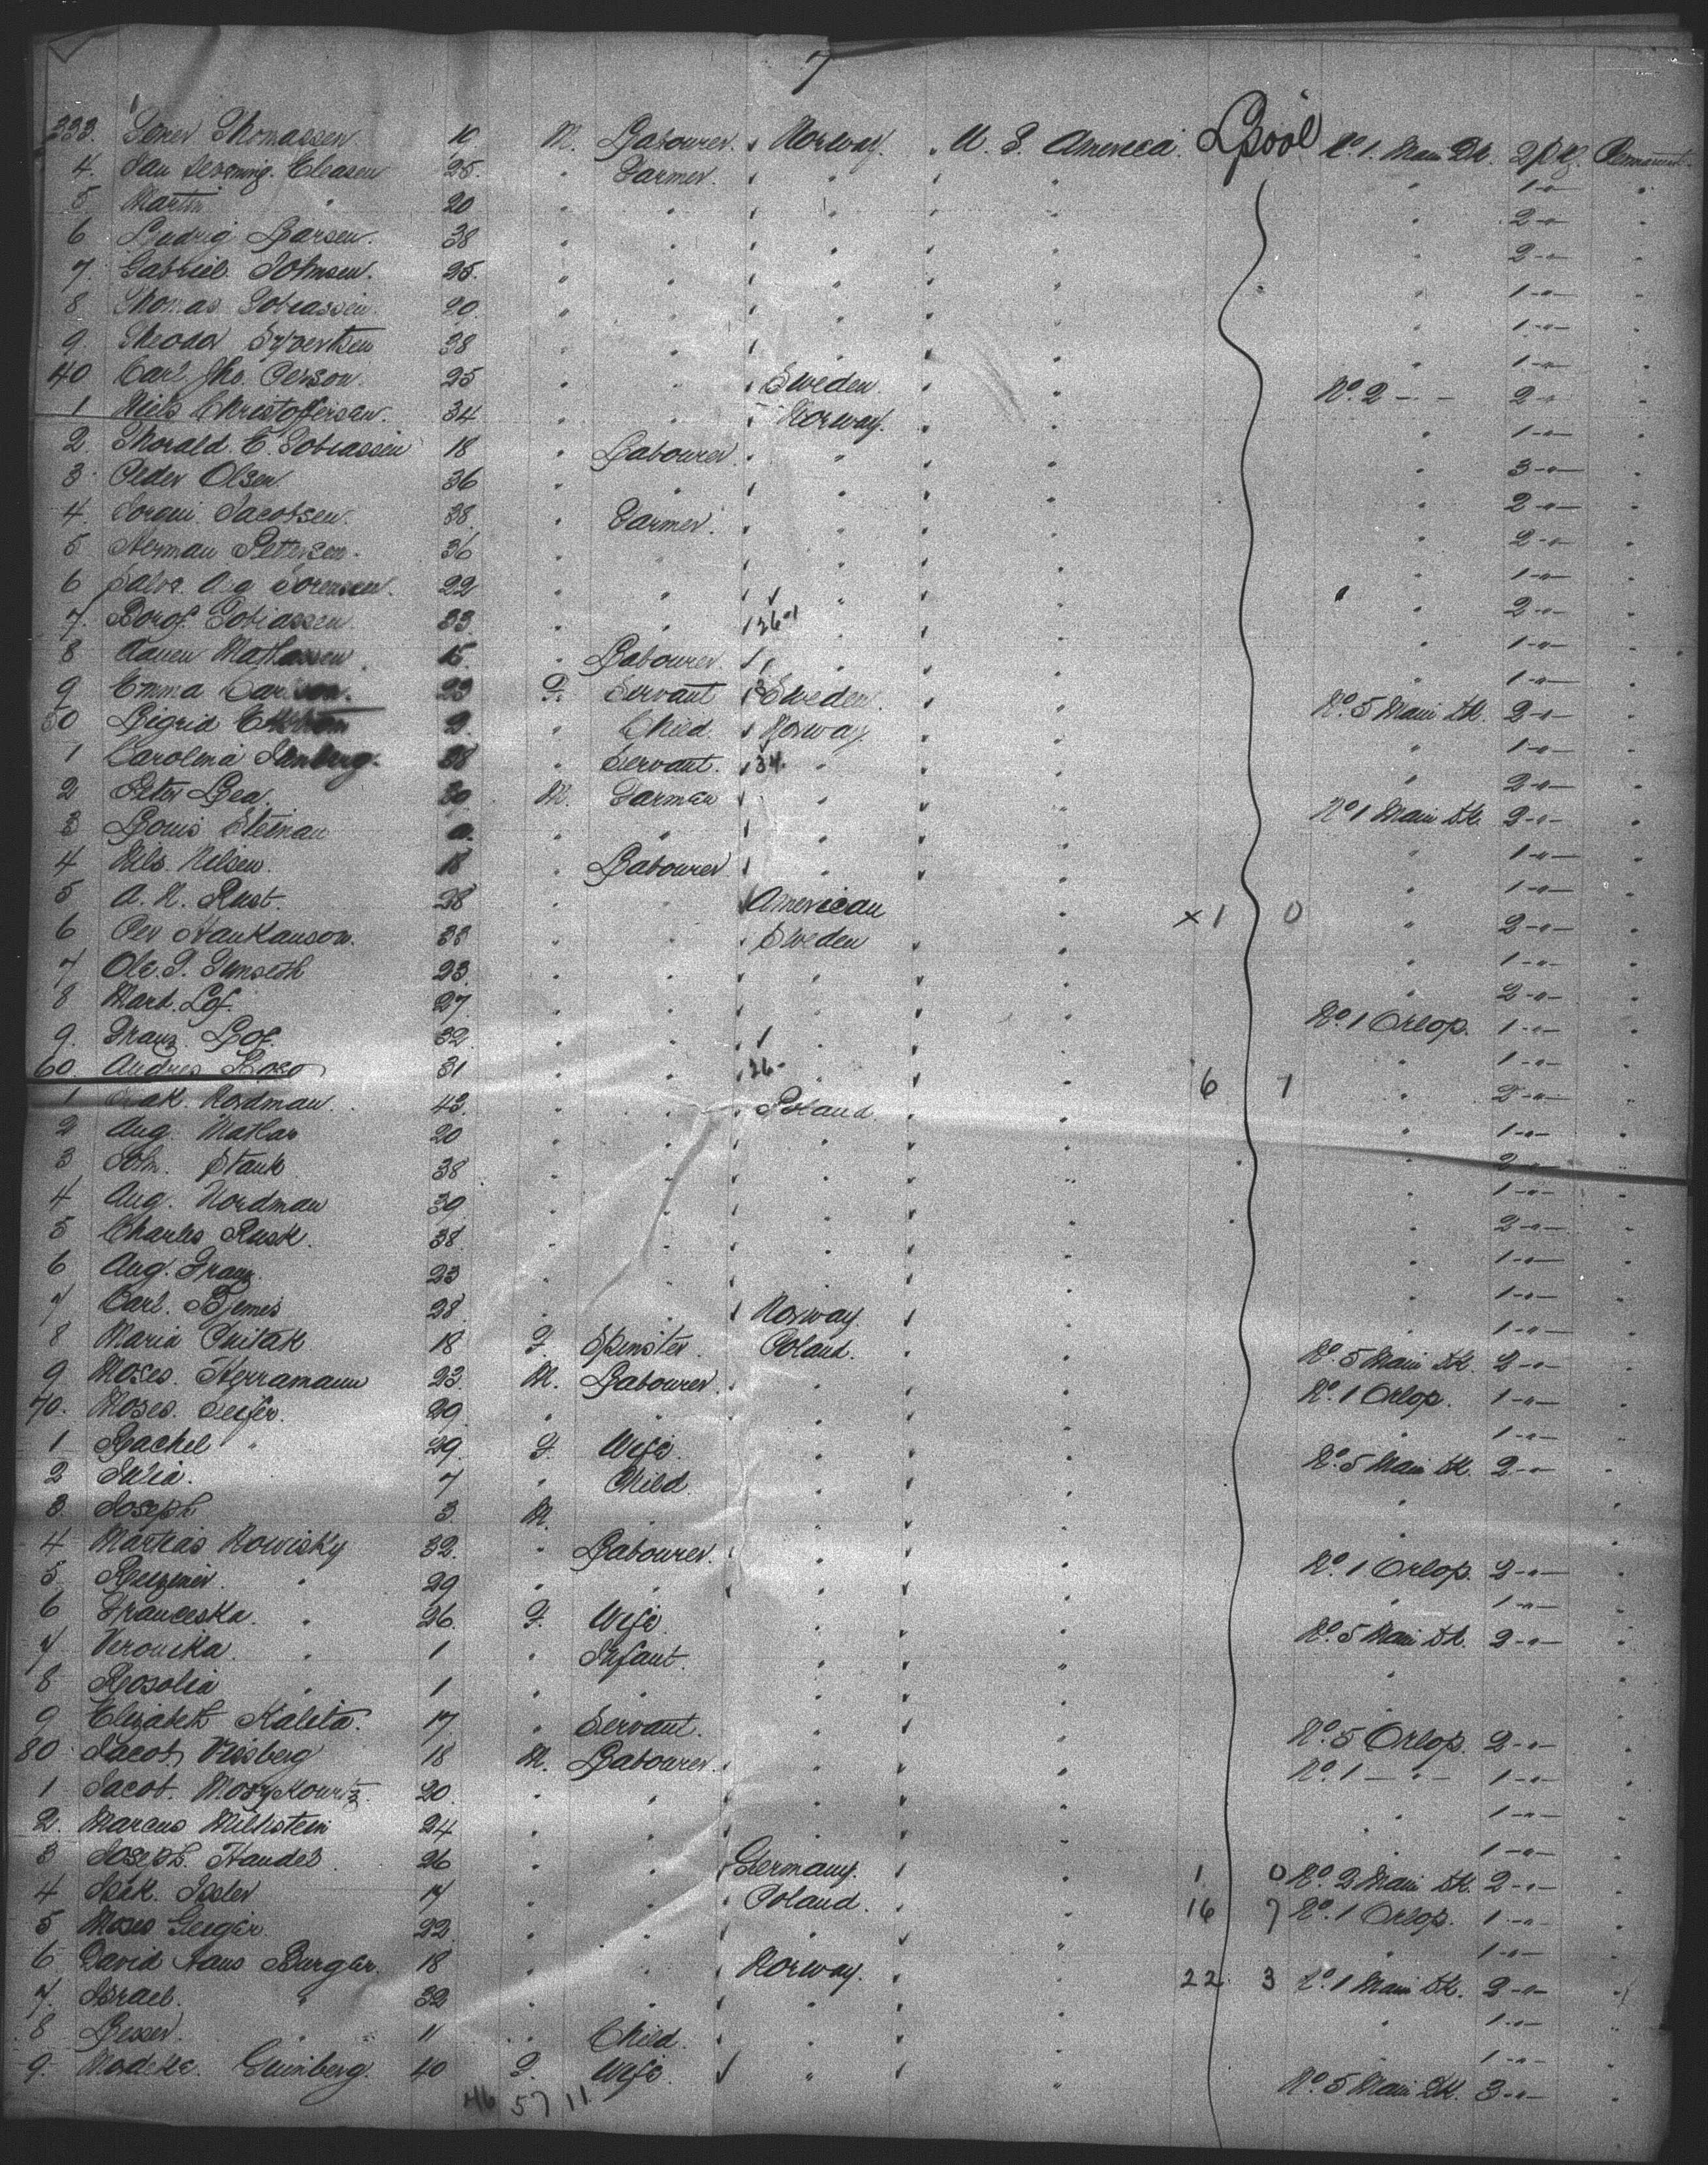 7
333. Thomassen 19 M. Labourer. Norway. U. S. America. Lpool No. 1. Main Dk. 2 pkg. Permanent
4. Eleasen 25. " Farmer. " " " 1 - " - "
5 Martin " 20 " " " " " 2 - " - "
6 Ludvig Larsen. 38 " " " " " 2 - " - "
7 Gabriel Johnsen. 25. " " " " " 1 - " - "
8 Thomas Tobiassen. 20. " " " " " 1 - " - "
9. Theodor Syvertsen 38 " " " " " 1 - " - "
40 Carl Jho. Person. 25 " " Sweden. " No. 2 - - 2 - " "
1 Niels Christoffersen. 34 " " Norway. " " 1 - " - "
2. Thorald C. Tobiassen 18 " Labourer. " " " 3 - " - "
3. Peder Olsen. 36 " " " " " 2 - " - "
4. Jacobsen. 38. " Farmer. " " " 2 - " - "
5 Herman Pettersen. 36 " " " " " 1 - " - "
6 Sorensen. 22 " " " " " 2 - " - "
7. Tobiassen. 33. " " 26 " " " 1 - " - "
8 Mathassen. 15. " Labourer. " " " 1 - " - "
9 Emma Carlson. 23 F. Servant Sweden. " No. 5 Main Dk. 2 - " - "
50 Sigrid 9. " Child. Norway " " 1 - " - "
1 Carolina 38 " Servant. 34. " " " 2 - " - "
2 Peter Lea. 30 M. Farmer " " No. 1 Main Dk. 2 - " - "
3 Louis " " " " " 1 - " - "
4 Nils. Nilsen. 18 " Labourer " " " 1 - " - "
5 A. N. Rust. 28 " " American " x 1 0 " 2 - " - "
6 Per Hankanson. 33 " " Sweden " " 1 - " - "
7 Ole. P. 23. " " " " " 2 - " - "
8 Mart. Lof. 27. " " " " No. 1 Orlop. 1 - " - "
9. Franz. Lof. 32. " " " " " 1 - " - "
60. Andres 31 " " 26 " " 6 1 " 2 - " - "
1 Nordman. 43. " " Poland. " " 1 - " - "
2 Aug. Mathar 20 " " " " " 2 - " - "
3 Joh. Stank 38. " " " " " 1 - " - "
4 Aug. Nordman 39. " " " " " 2 - " - "
5 Charles Rusk. 38. " " " " " 1 - " - "
6 Aug. Franz. 23 " " " " " 1 - " - "
7 Carl. 28. " " Norway. " " 1 - " - "
8 Maria 18 F. Spinster. Poland. " No. 5 Main Dk. 2 - " - "
9 Moses. Herramann 23. M. Labourer. " " No. 1 Orlop. 1 - " - "
70. Moses. 29. " " " " " 1 - " - "
1 Rachel " 29. F. Wife. " " No. 5 Main Dk. 2 - " - "
2 Julia. 7 " Child. " " "
3. Joseph 3. M. " " " "
4 Mathias Nowisky 32. " Labourer. " " No. 1 Orlop. 2 - " - "
5 " 29 " " " " " 1 - " - "
6 Franceska. " 26. F. Wife. " " No. 5 Main Dk. 2 - " - "
7 Veronika. " 1 " Infant. " " "
8 Rosolia " 1 " " " " "
9 Elizabeth Kaleta. 17. " Servant. " " No. 5 Orlop. 2 - " - "
80. Jacob Visberg 18 M. Labourer. " " No. 1 - " - 1 - " - "
1 Jacob. 20. " " " " " 1 - " - "
2. Marcus Milhstein 24 " " " " " 1 - " - "
3 Joseph. Handes 26 " " Germany. " 1 0 No. 2 Main Dk. 2 - " - "
4 Isak. 17 " " Poland. " 16 7 No. 1 Orlop. 1 - " - "
5 Moses Geeger. 22. " " " " " 1 - " - "
6. David Haus Burger. 18 " " Norway. " 22. 3 No. 1 Main Dk. 2 - " - "
7. Israel. " 32 " " " " " 1 - " - "
8 Lesser. " 11 " Child. " " " 1 - " - "
9. Grinberg. 40 F. Wife. " " No. 5 Main Dk. 3 - " - "
46 57 11